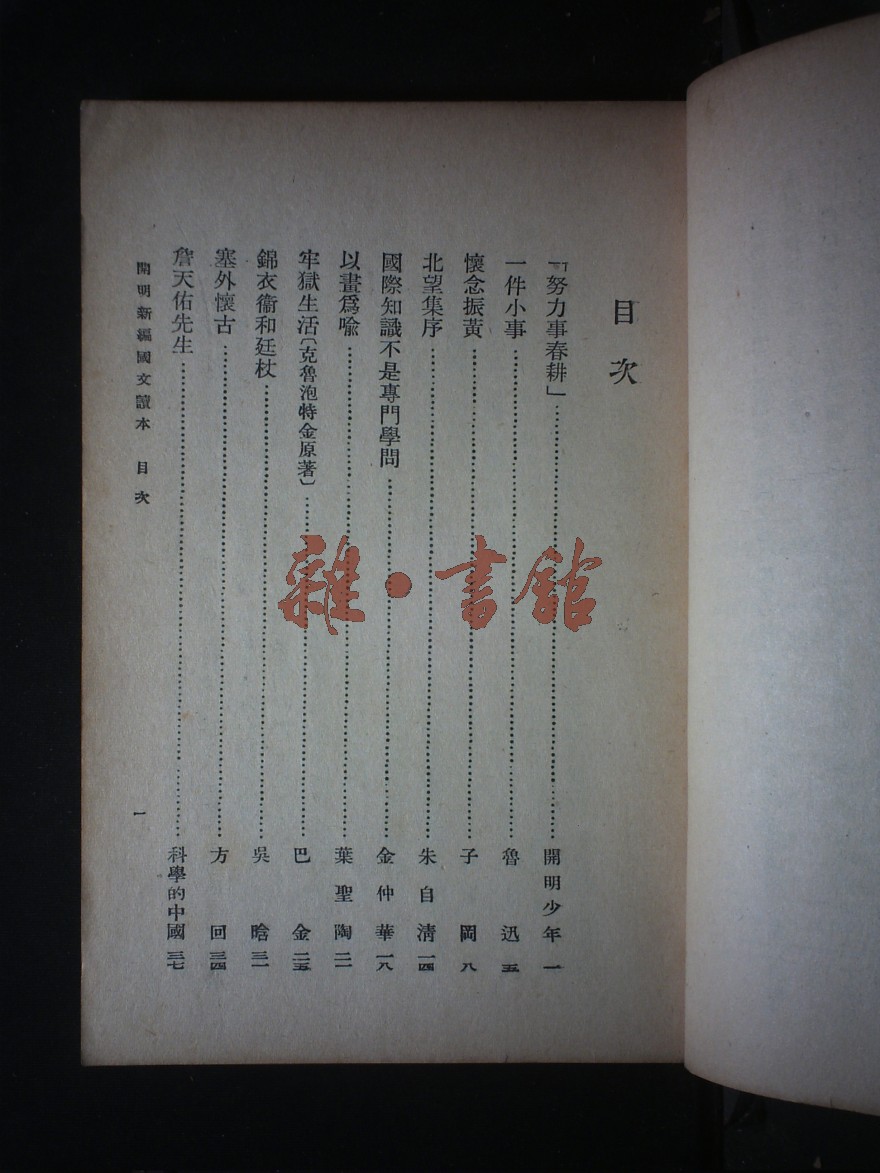 目次
「努力事春耕」……開明少年 一
一件小事……魯迅 五
懷念振黃……子岡 八
北望集序……朱自清 一四
國際知識不是專門學問……金仲華 一八
以畫爲喩……葉聖陶 二一
牢獄生活〔克魯泡特金原著〕……巴金 二五
錦衣衞和廷杖……吳晗 三一
塞外懷古……方回 三四
詹天佑先生……科學的中國 三七
開明新編國文讀本 目次 一
雜·書館